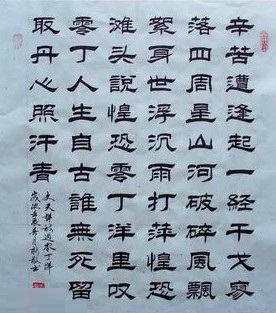 辛苦遭逢起一経干戈寥
落四周星山河破碎風飄
絮身世浮沉雨打萍惶恐
滩头說惶恐零丁洋里叹
零丁人生自古誰無死留
取丹心照汗青
文天祥詩過零丁洋
歲次壬辰